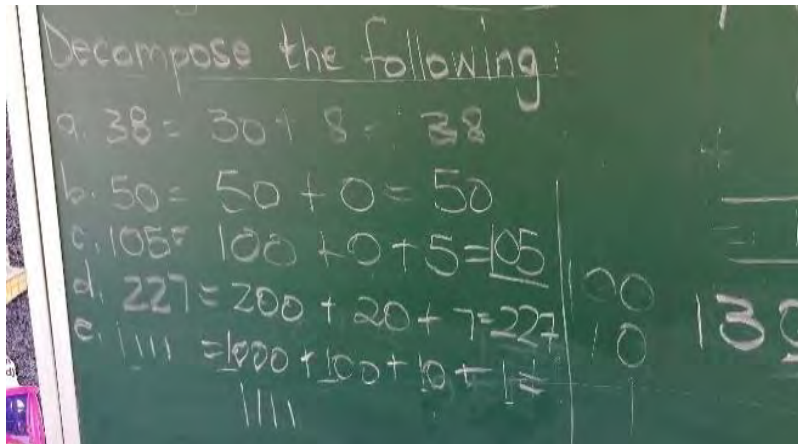 Decompose the following:
a. 38 = 30 + 8 = 38
b. 50 = 50 + 0 = 50
c. 105 = 100 + 0 + 5 = 105
d. 227 = 200 + 20 + 7 = 227
e. 1111 = 1000 + 100 + 10 + 1 =
1111
100
10
1
+
=
130